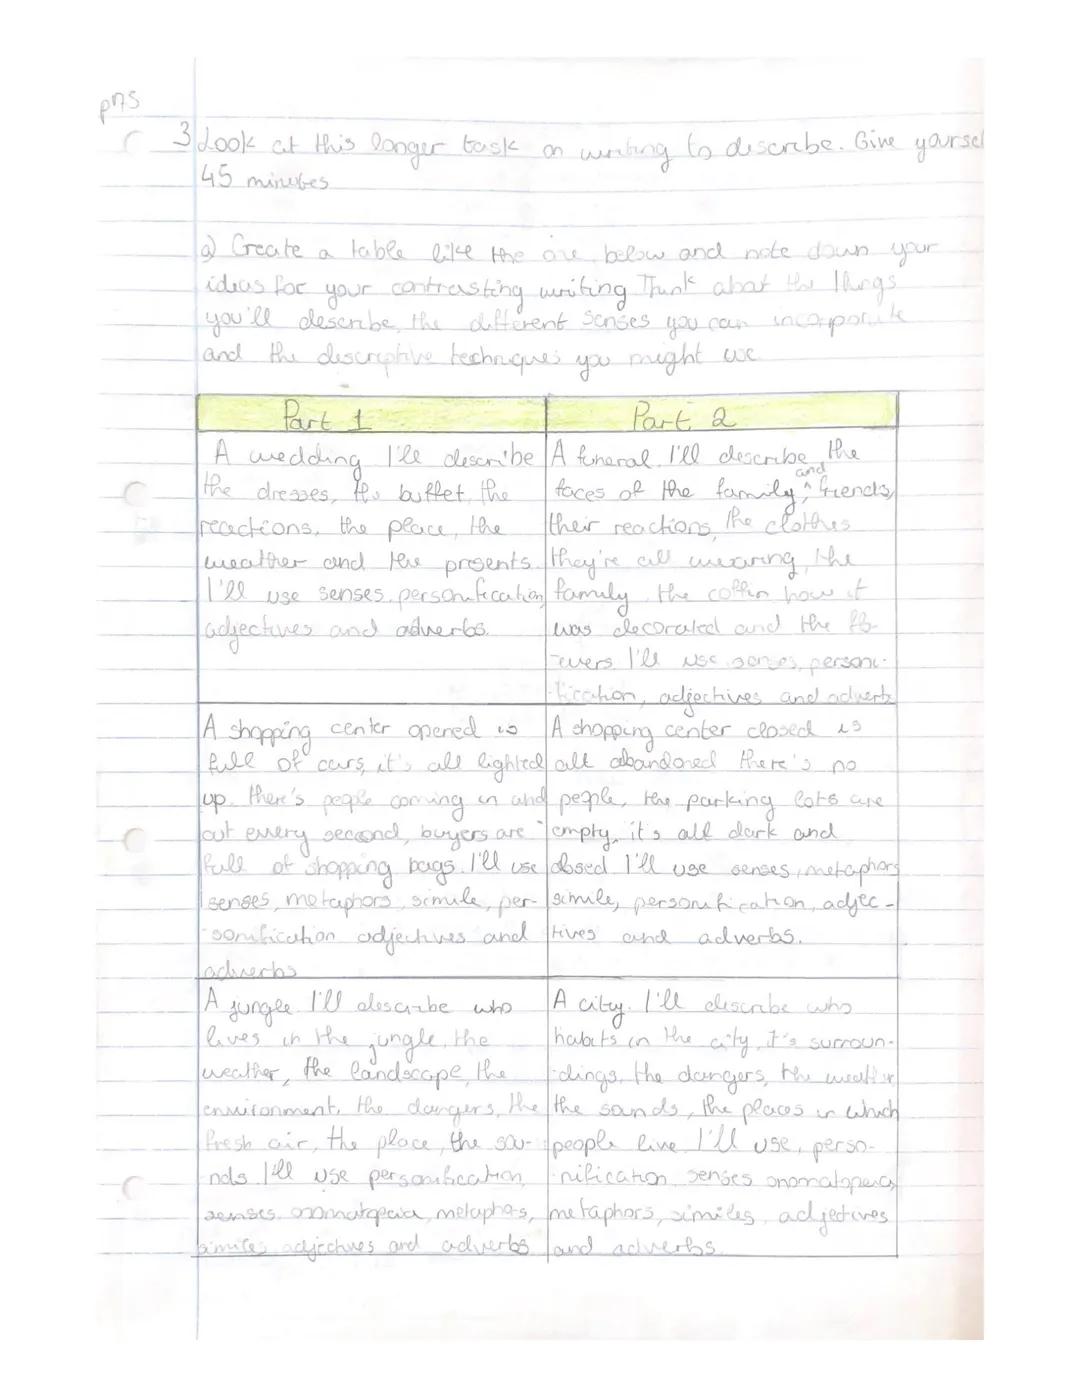 p75
3 Look at this longer task on writing to describe. Give yoursel
45 minutes
a) Create a table like the one below and note down your
ideas for your contrasting writing. Think about the things
you'll describe, the different senses you can incorporate
and the descriptive techniques you might use
Part 1
A wedding. I'll describe
the dresses, the buffet, the
reactions, the place, the
weather and the presents.
I'll use senses, personification,
adjectives and adverbs.
Part 2
A funeral. I'll describe the
faces of the family and friends,
their reactions, the clothes
they're all wearing, the
family, the coffin how it
was decorated and the flo-
-wers I'll use senses, personi-
-fication, adjectives and adverbs
A shopping center opened is
full of cars, it's all lighted
up. there's people coming in and
out every second, buyers are
full of shopping bags. I'll use
senses, metaphors, simile, per-
-sonification adjectives and
adverbs
A shopping center closed is
all abandoned there's no
people, the parking lots are
empty, it's all dark and
closed. I'll use senses, metaphors
simile, personification, adjec-
tives and adverbs.
A jungle. I'll describe who
lives in the jungle, the
weather, the landscape, the
environment, the dangers, the
fresh air, the place, the sou-
-nds. I'll use personification,
senses, onomatopeia, metaphors,
similes, adjectives and adverbs.
A city. I'll describe who
habits in the city, it's surroun-
-dings, the dangers, the weather,
the sounds, the places in which
people live. I'll use, perso-
-nification, senses onomatopeia,
metaphors, similes, adjectives
and adverbs.